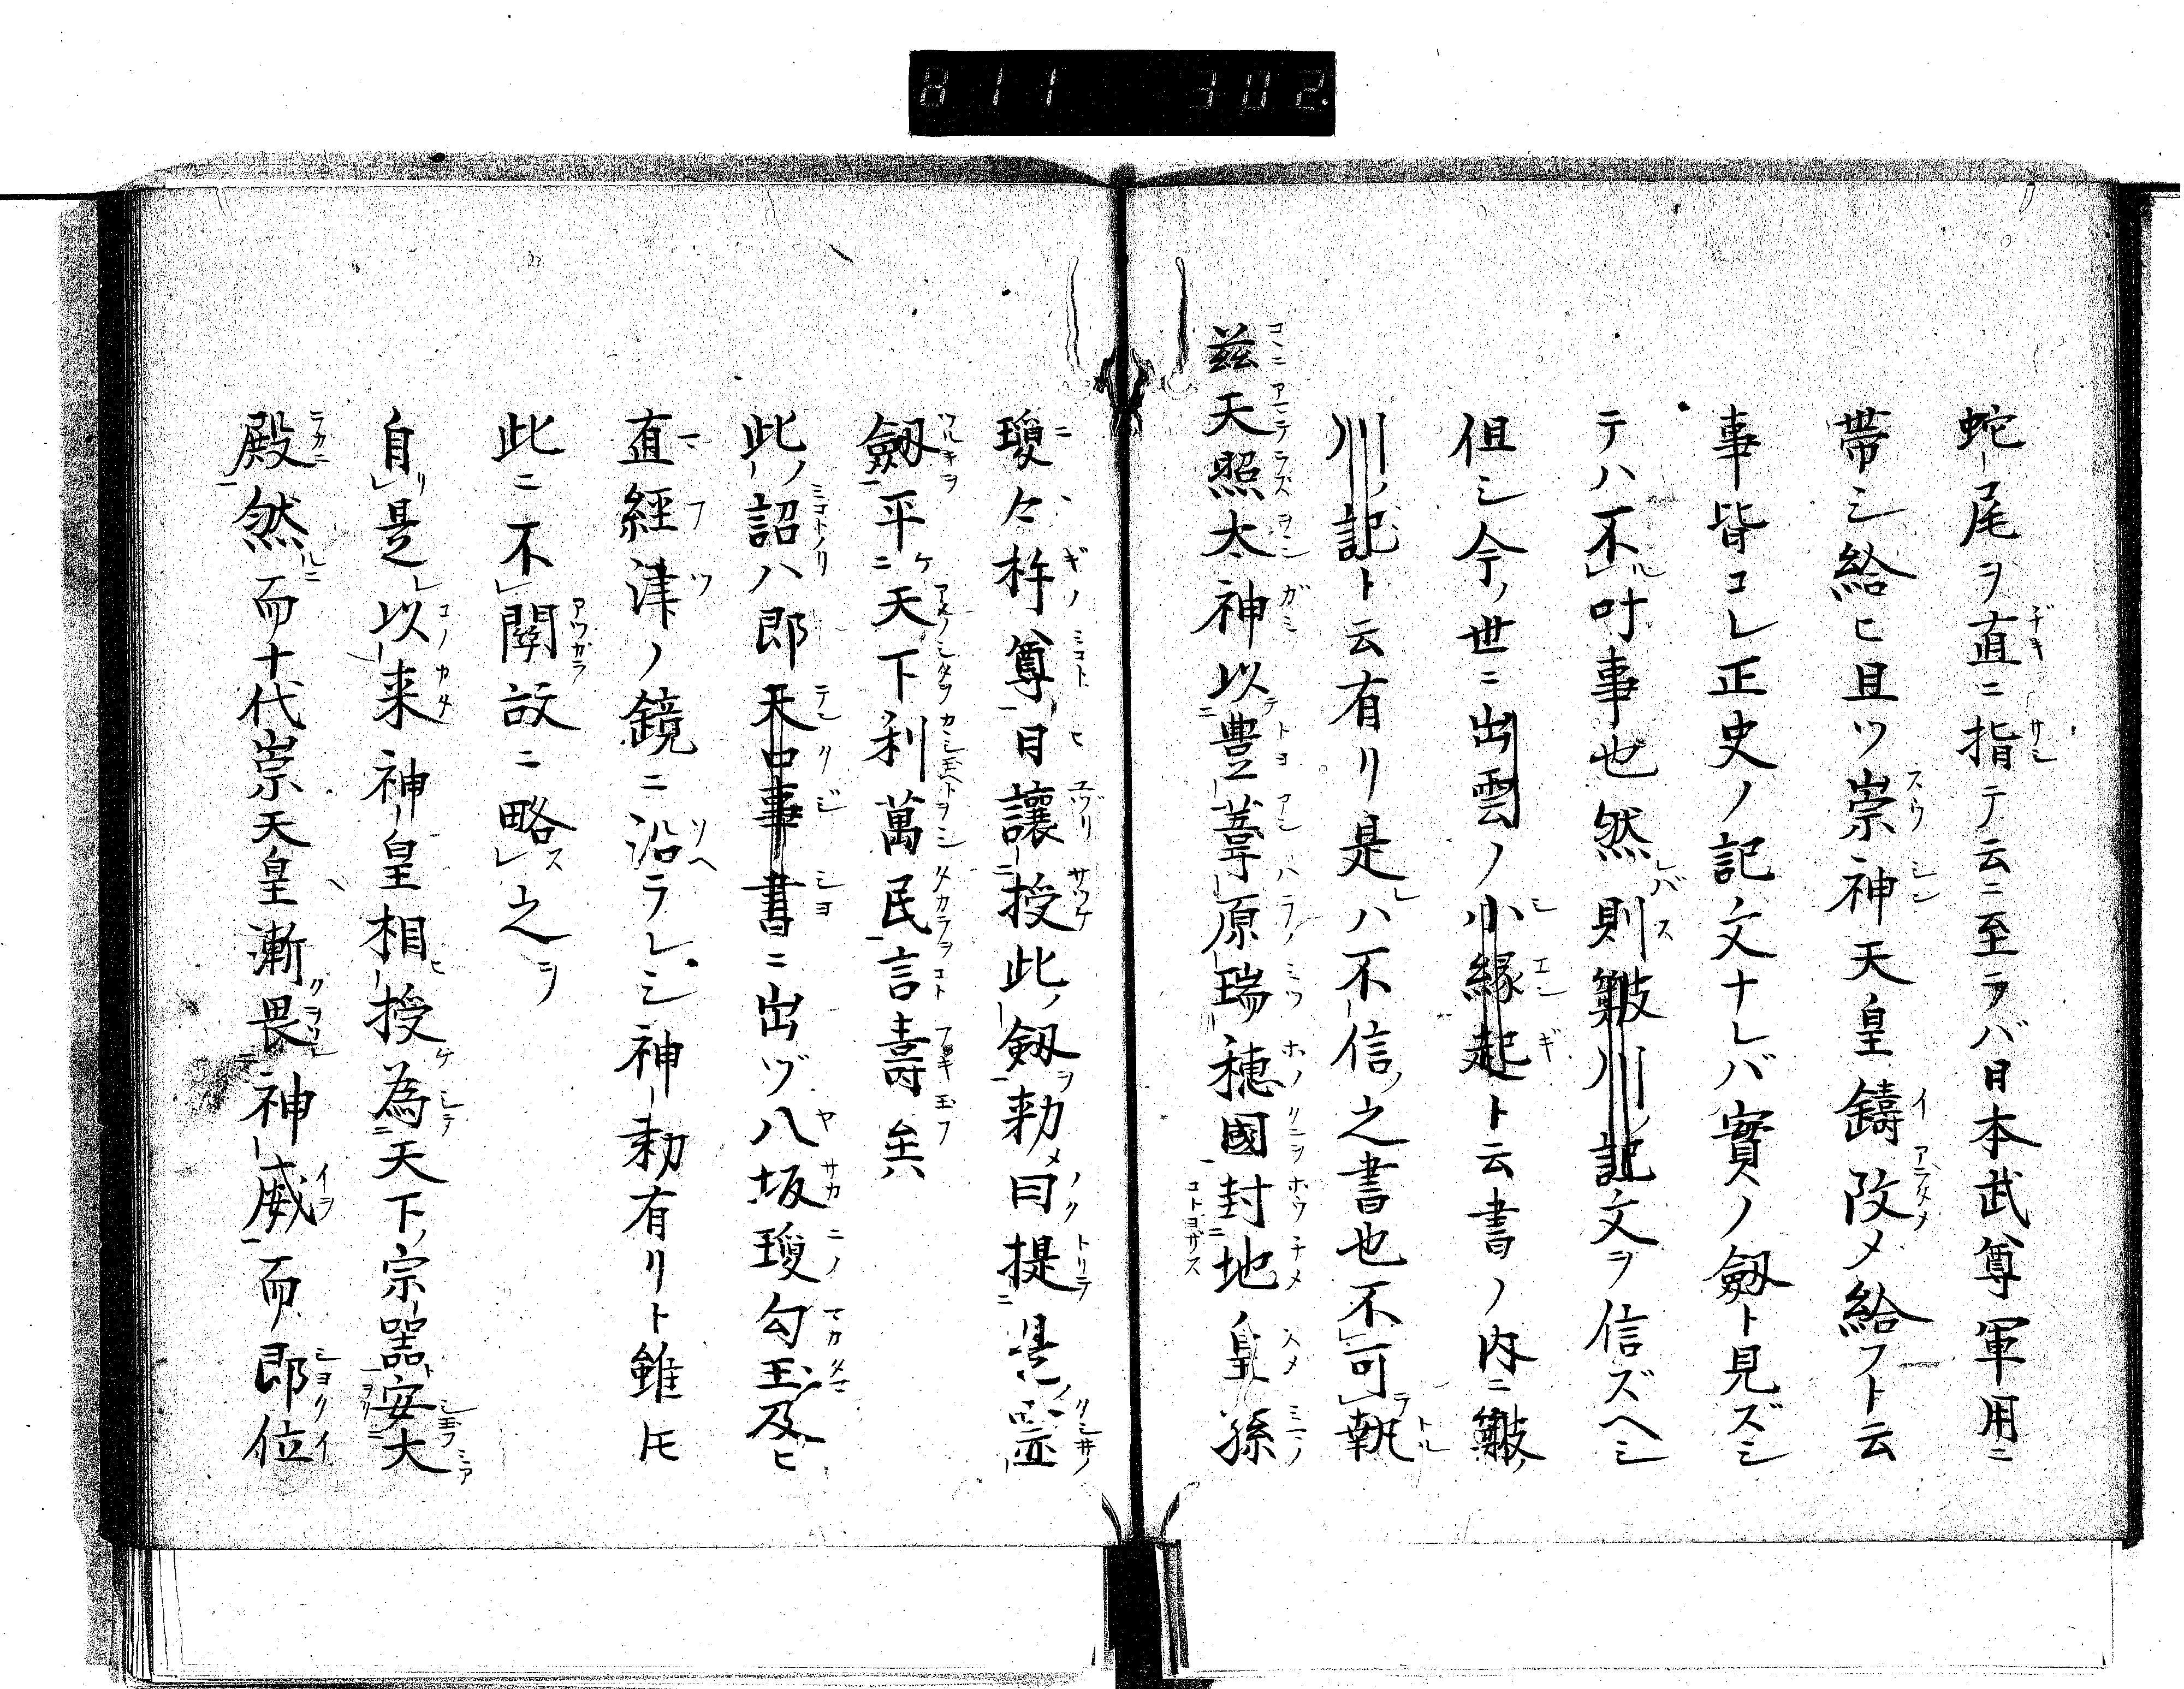 811 302.
蛇尾ヲ直ニ指テ云ニ至ラバ日本武尊軍用ニ
帯シ給ヒ且ツ崇神天皇鑄改メ給フト云
事皆コレ正史ノ記文ナレバ實ノ劔ト見ズシ
テハ不叶事也然則簸川記文ヲ信ズヘシ
但シ今ノ世ニ出雲ノ小縁起ト云書ノ内ニ簸
川ノ記ト云有リ是ハ不信之書也不可執
茲天照太神以豊葦原瑞穂國封地皇孫
瓊々杵尊曰讓授此ノ劔ヲ勅曰提是霊
劔平天下利萬民言壽矣
此ノ詔ハ即天口事書ニ出ヅ八坂瓊勾玉及ヒ
直經津ノ鏡ニ沿ラレシ神勅有リト雖トモ
此ニ不關故ニ略之ヲ
自是以来神皇相授為天下ノ宗器安大
殿然而十代崇天皇漸畏神威而即位